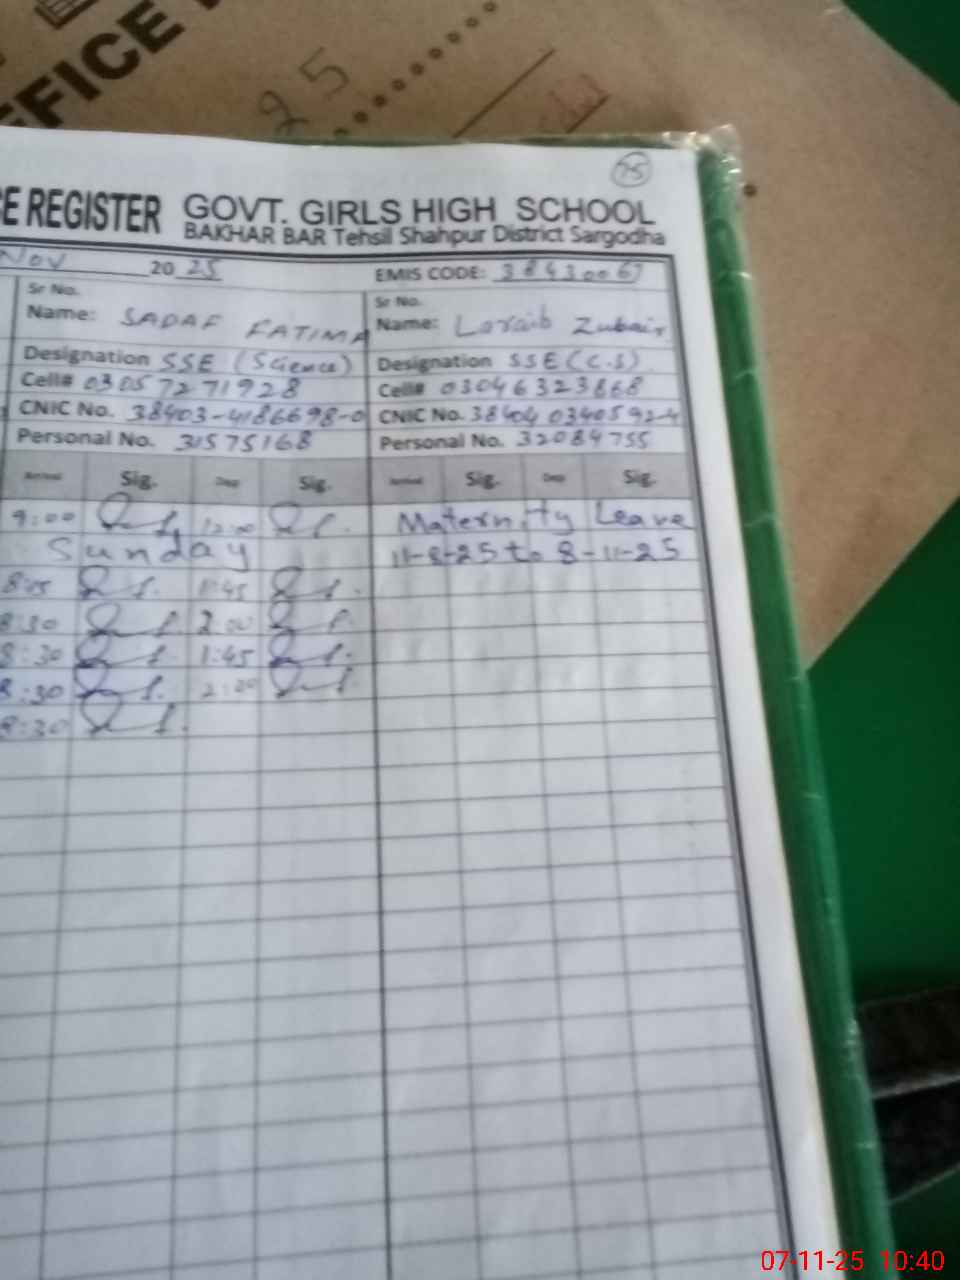 FFICE
25
75
CE REGISTER GOVT. GIRLS HIGH SCHOOL
BAKHAR BAR Tehsil Shahpur District Sargodha
Nov 2025 EMIS CODE: 38430067
Sr No. Sr No.
Name: SADAF FATIMA Name: Loraib Zubair
Designation SSE (Science) Designation SSE (C.S)
Cell# 03057271928 Cell# 03046323868
CNIC No. 38403-4186698-0 CNIC No. 38404 0340592-4
Personal No. 31575168 Personal No. 32084755
Arrival Sig. Dep Sig. Arrival Sig. Dep Sig.
9:00 12:00 Maternity Leave
Sunday 11-8-25 to 8-11-25
8:05 11:45
8:30 2:00
8:30 1:45
8:30 2:20
8:30
07-11-25 10:40